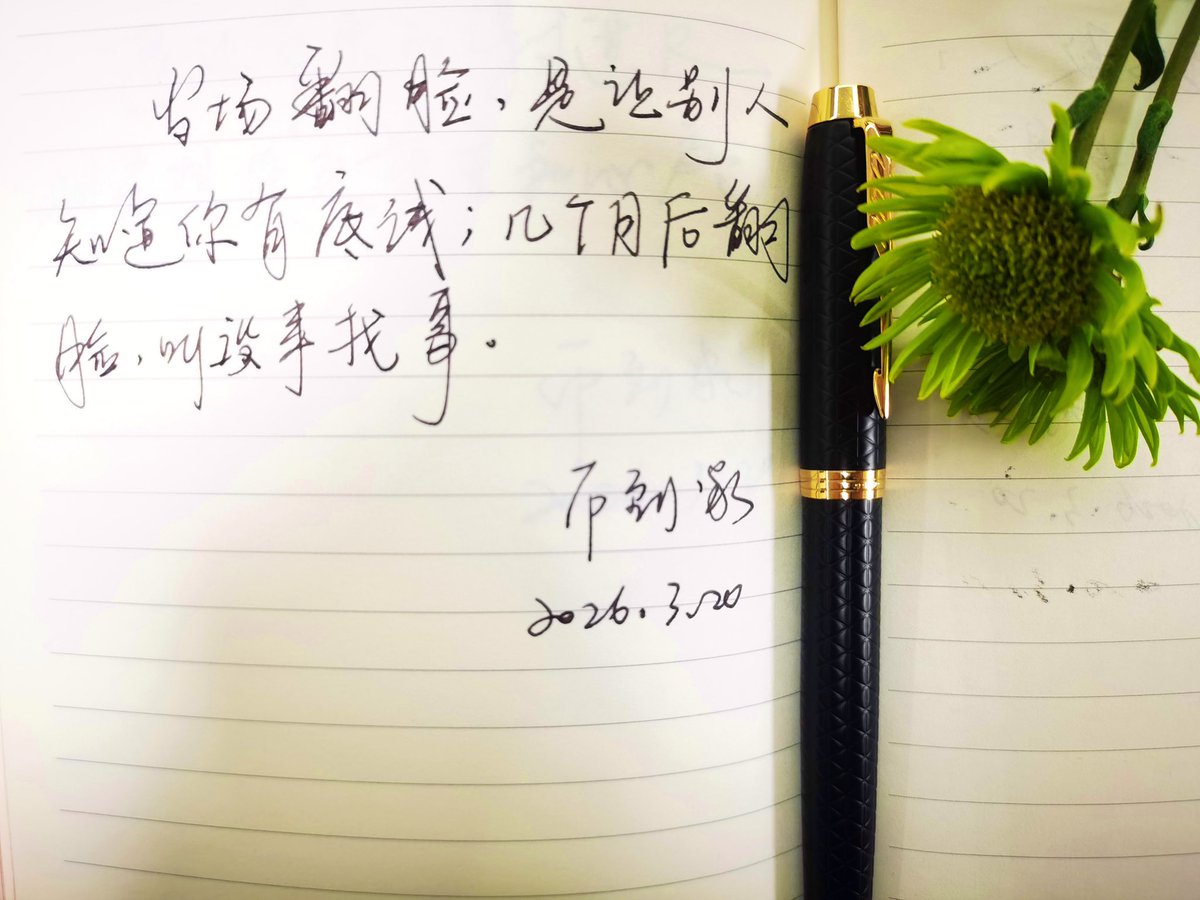 当场翻脸，是让别人
知道你有底线；几个月后翻
脸，叫没事找事。
2026.3.20